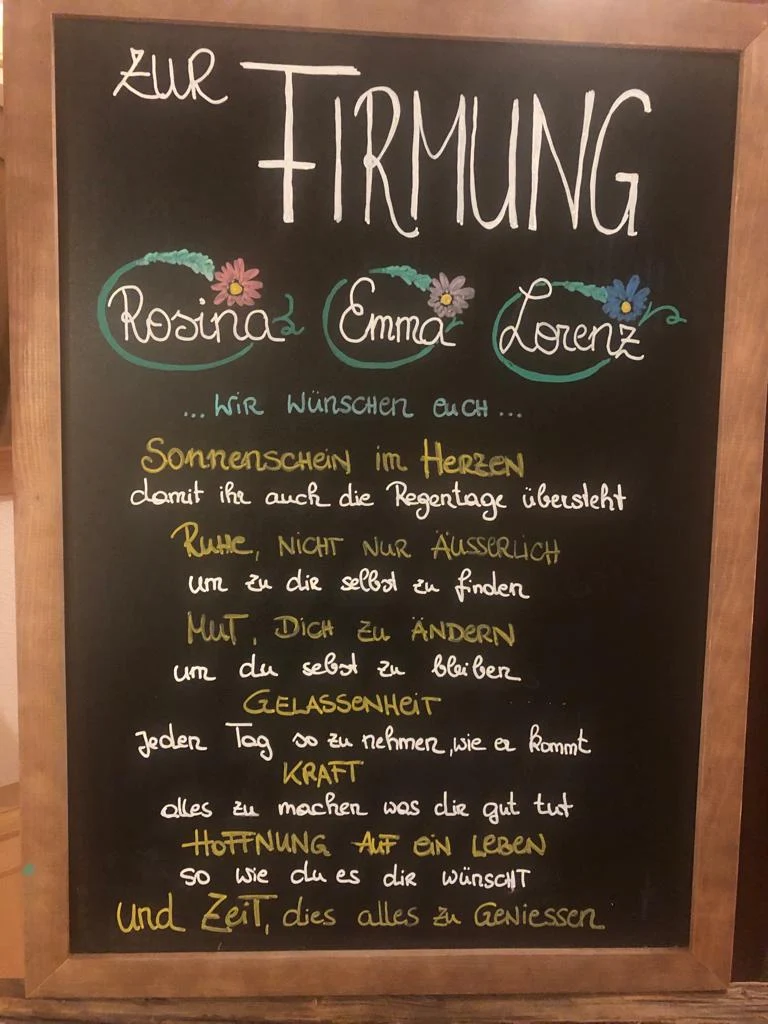 ZUR FIRMUNG
Rosina Emma Lorenz
... WIR WÜNSCHEN EUCH ...
SONNENSCHEIN im HERZEN
damit ihr auch die Regentage übersteht
RUHE, NICHT NUR ÄUSSERLICH
um zu dir selbst zu finden
MUT, DICH ZU ÄNDERN
um du sebst zu bleiben
GELASSENHEIT
jeden Tag so zu nehmen, wie er kommt
KRAFT
alles zu machen was dir gut tut
HOFFNUNG AUF EIN LEBEN
so wie du es dir WÜNSCHT
und ZEIT, dies alles zu GENIESSEN